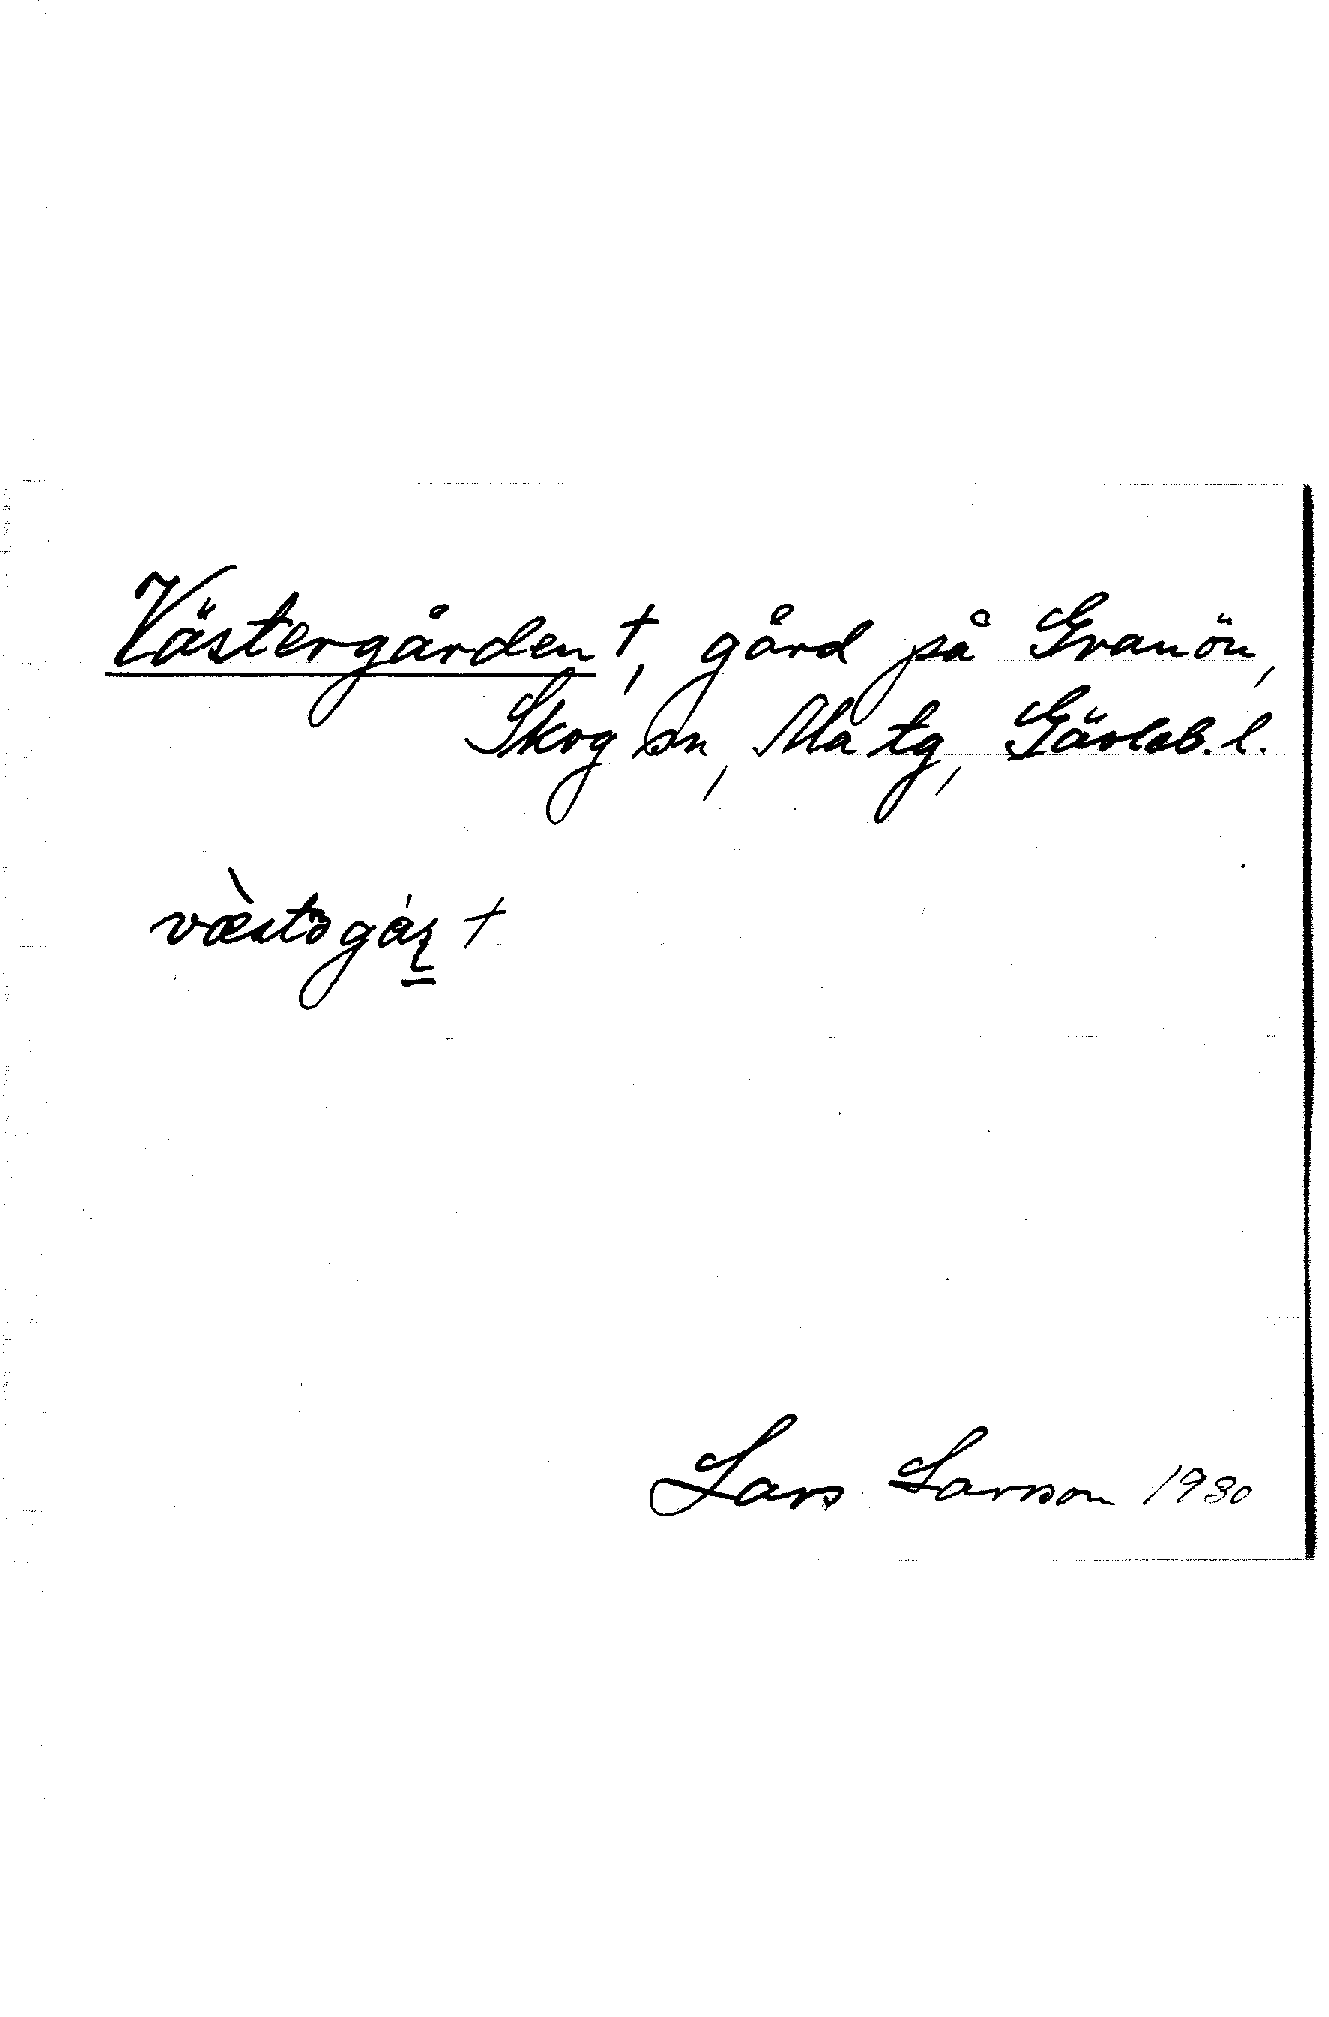 Västergården †, gård på Granön,
Skog sn, Ala tg, Gävleb. l.
væ̀stəgáɳ +
Lars Larsson 1980